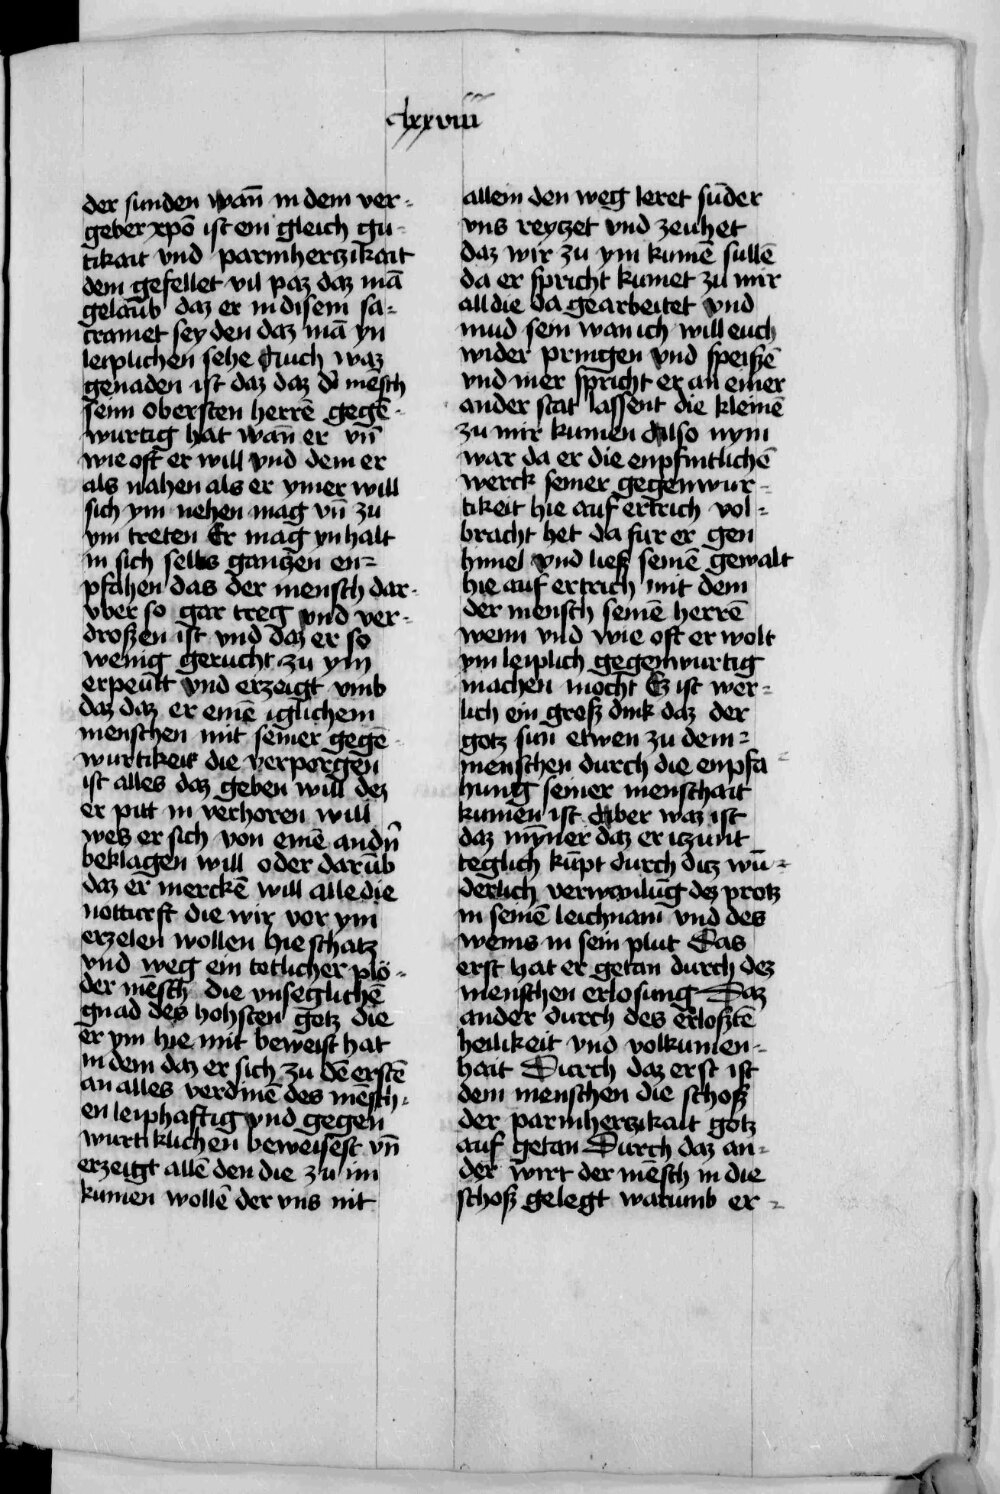 clxxviii
der sunden wañ in dem ver-
geber xpō ist ein gleich gu-
tikait vnd parmhertzikait
dem gefellet vil paz daz mā
gelaub daz er in disem sa-
crament sey den daz mā yn
leiplichen sehe Auch waz
genaden ist daz daz d̉ mēsch
seim obersten herrē gegē-
wurtig hat wañ er vñ
wie oft er will vnd dem er
als nahen als er ymer will
sich ym nehen mag vñ zu
ym treten Er mag yn halt
in sich selbs gantzen en-
pfahen das der mensch dar-
vber so gar treg vnd ver-
droßen ist vnd daz er so
wenig gerucht zu ym
erpeutt vnd erzeigt vmb
daz daz er einē iglichem
menschen mit seiner gegē
wurtikeit die verporgen
ist alles daz geben will dez
er pitt in verhoren will
wes er sich von einē andn̄
beklagen will oder darūb
daz er merckē will alle die
notturft die wir vor ym
erzelen wollen hie schatz
vnd weg ein totlicher plö-
der mēsch die vnseglichē
gnad des hohsten gotz die
er ym hie mit beweist hat
in dem daz er sich zu dē erstē
an alles verdinē des mēsch-
en leiphaftig vnd gegen
wurtiklichen beweisest vñ
erzeigt allē den die zu im
kumen wollē der vns nit
allein den weg leret sūder
vns reytzet vnd zeuhet
daz wir zu ym kumē sullē
da er spricht kumet zu mir
all die da gearbeitet vnd
mud sein wan ich will euch
wider pringen vnd speißē
vnd mer spricht er an einer
ander stat lassent die kleinē
zu mir kumen Also nym
war da er die enpfintlichē
werck seiner gegenwur-
tikeit hie auf ertrich vol-
bracht het da fur er gen
himel vnd ließ seinē gewalt
hie auf ertrich mit dem
der mensch seinē herrē
wenn vnd wie oft er wolt
ym leiplich gegenwurtig
machen mocht Ez ist wer-
lich ein groß dink daz der
gotz sun etwen zu dem-
menschen durch die enpfa-
hung seiner menschait
kumen ist Aber waz ist
daz mynner daz er itzunt
teglich kūpt durch ditz wū-
derlich verwanlūg dez protz
in seinē leichnam vnd des
weins in sein plut Das
erst hat er getan durch dez
menschen erlosung Daz
ander durch des erlostē
heilikeit vnd volkumen-
hait Durch daz erst ist
dem menschen die schoß
der parmhertzikait gotz
auf getan Durch daz an-
der wirt der mēsch in die
schoß gelegt warumb er-